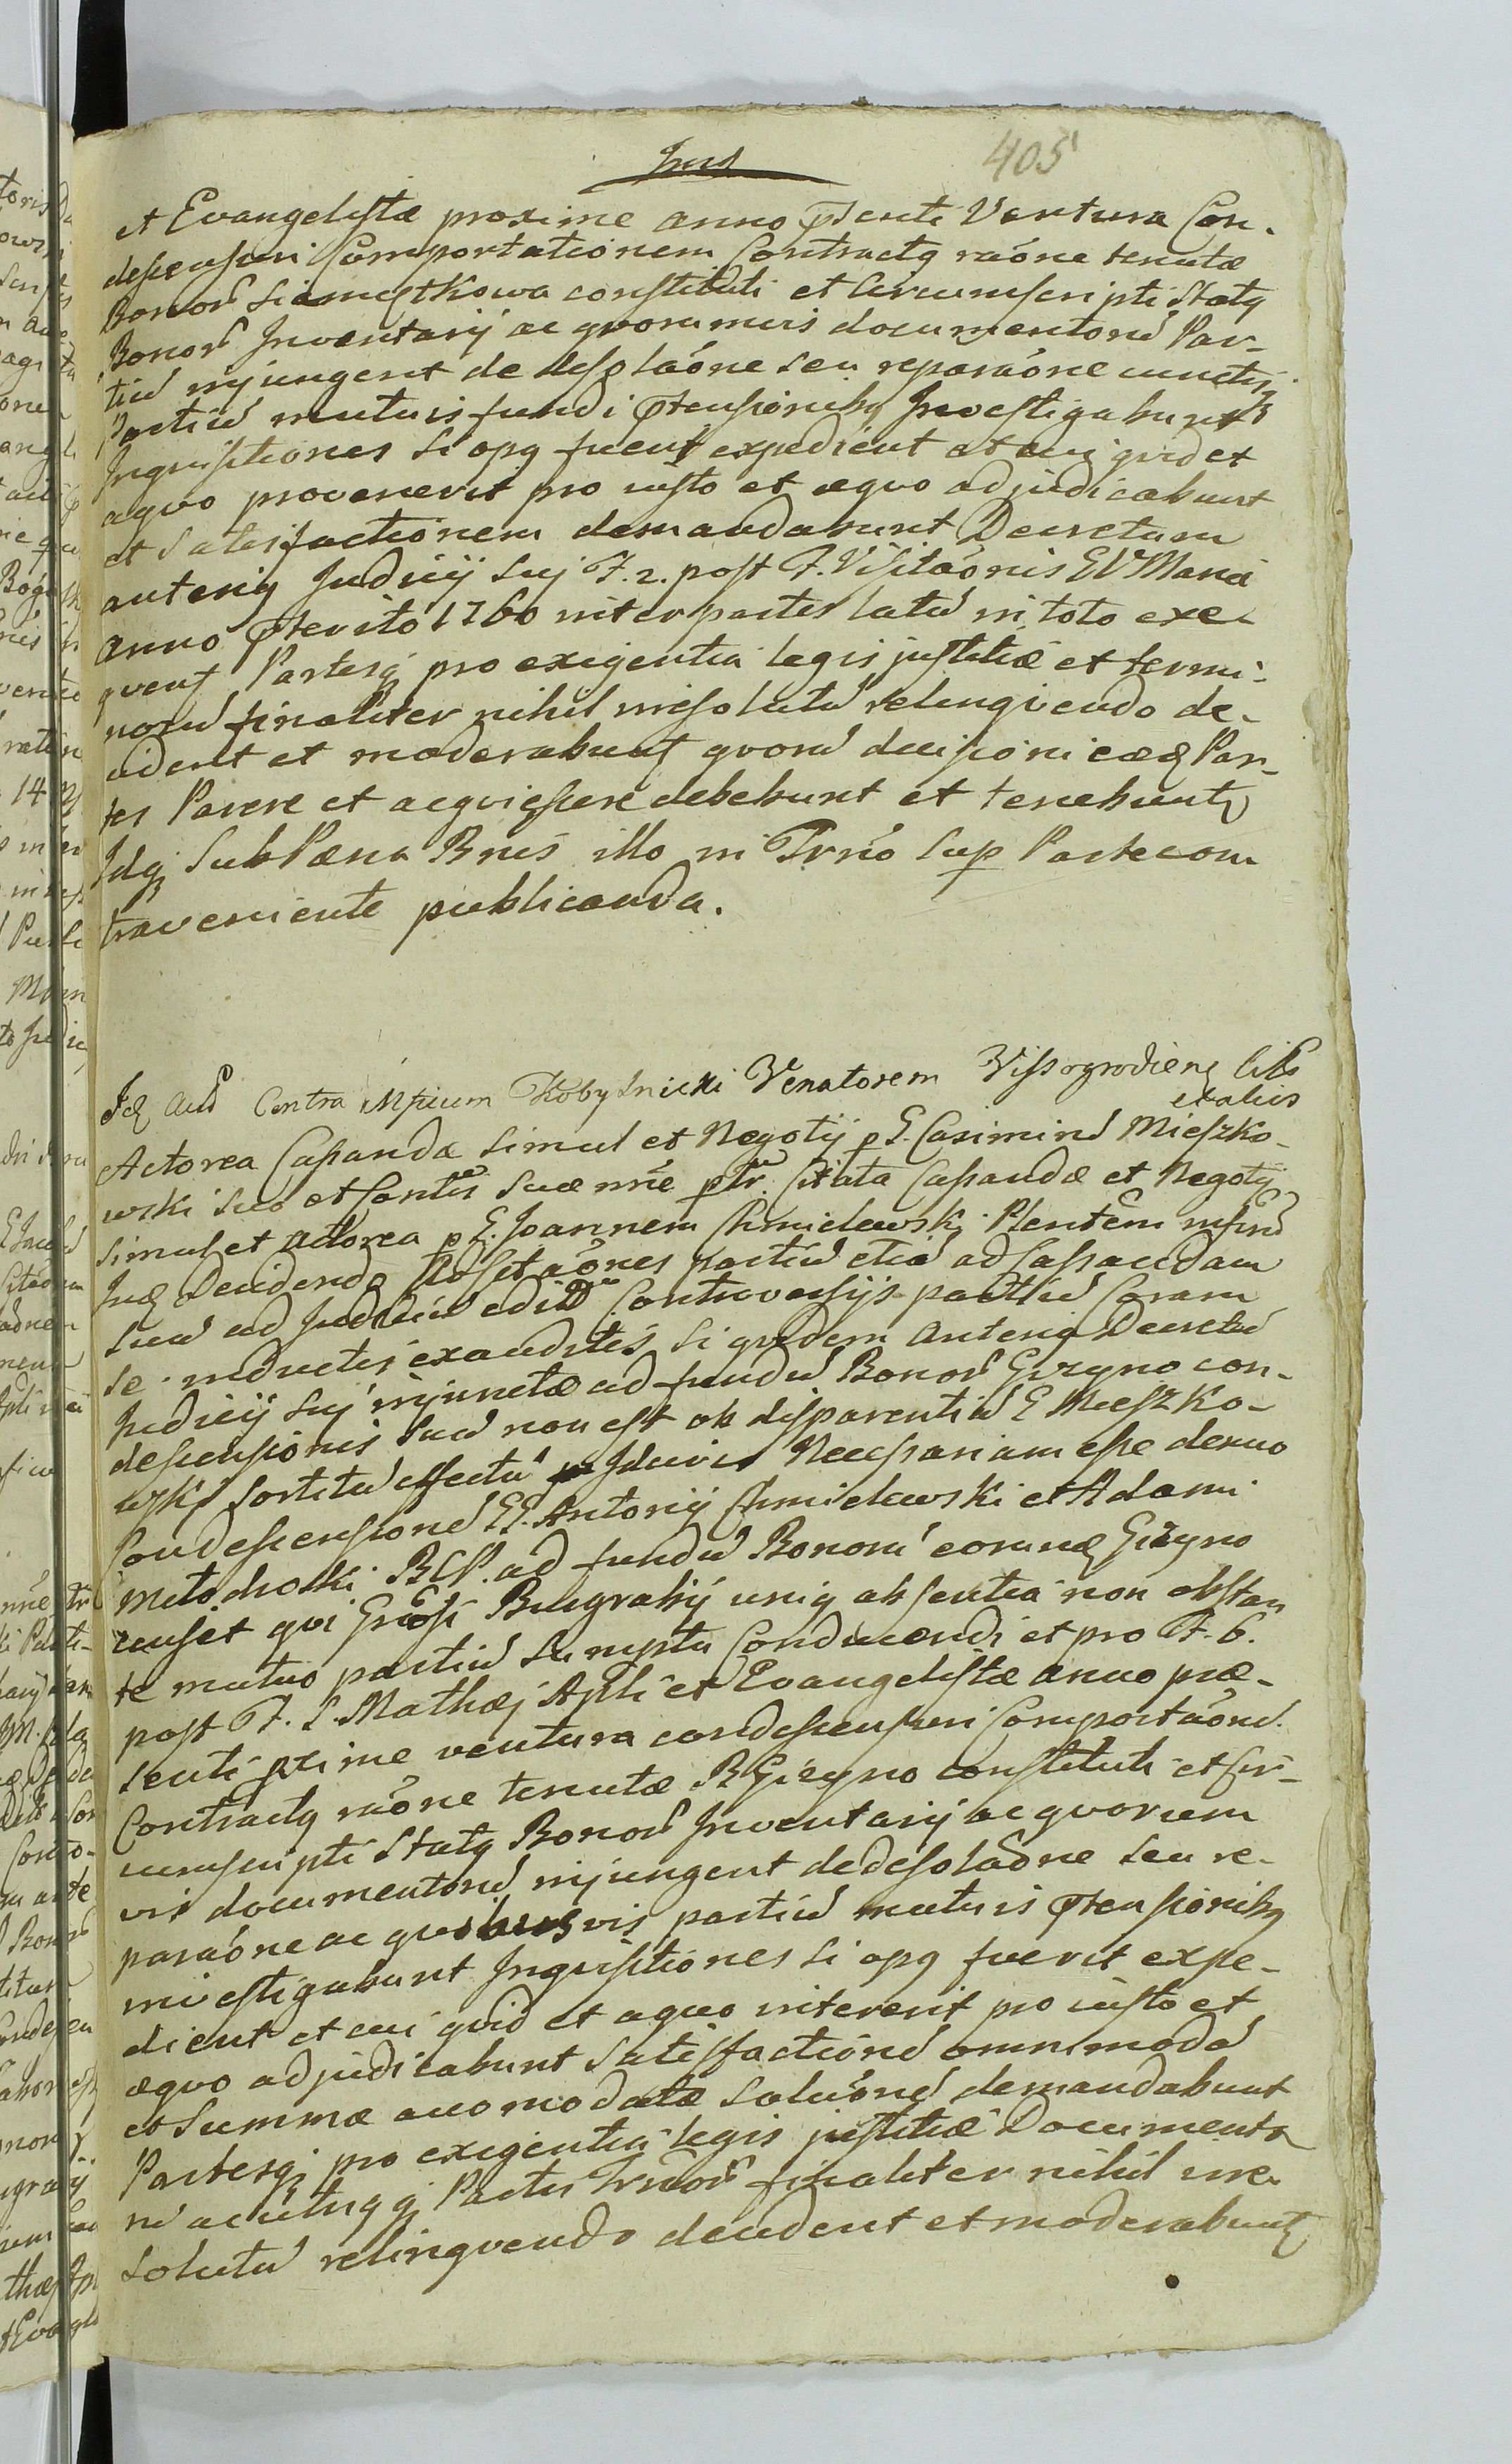 405
et Evangelistæ proxime anno pñti Ventura Con-
descensuri Comportationem Contractq raõne tenutæ
Bonorũ Siemiętkowa constituti et Circumscripti Statq
Bonorũ Inventarij ac quorumvis documentorũ Par-
tiũ injungent de desolaõne seu reparaõne cunctisq
Partiũ mutuis fundi prtensionibq Investigabunt
Inquisitiones si opq fuerit expedient et cui quid et
a quo provenerit pro iusto et æquo adjudicabunt
et satisfactionem demandabunt Decretum
anteriq Judicij sui F. 2. post F. Visitaõnis BVMariæ
anno prterito 1760 inter partes latũ in toto exe-
quent Partesq pro exigentia legis justitiæ et termi-
norũ finaliter nihil irresolutũ relinquendo de-
cident et moderabunt quorũ decisioni eædẽ Par-
tes Parere et acquiescere debebunt et tenebunt
Idq Sub Pæna Bnis illo in Trño sup Parte con
traveniente publicanda.
Jdẽ Jud Contra Mficum Kobylnicki Venatorem Vissogrodienẽ
et alios
Actorea Cassanda simul et Negotij p G. Casimirũ Mieszko-
wski suo et Sortis suæ nñe ptr. Citata Cassandæ et Negotij
simul et actorea p G. Joannem Chmielewski
Judẽ Decidendẽ partiũ etiã ad Cassandam
suã ad Judiciũ Controversijs partiũ Coram
se inductis exauditis siquidem anteriq Decretũ
Judicij sui injunctæ ad fundũ Bonorũ Gizyno con-
descensionis suũ non est ob disparentiã G Mieszko-
wski sortitũ effectũ Iducirco Necessariam esse denuo
Condescensionẽ GG. Antonij Chmielewski et Adami
Młodnoski BCP. ad fundũ Bonorũ eorundẽ Gizyno
censet qui Burgrabij uniq absentia non obstan
te mutuo partiũ sumptu Conducendi et pro F. 6.
post F. S. Mathæj Apłi et Evangelistæ anno præ-
senti pxime ventura condescensuri Comportaõnẽ
Contractq raõne tenutæ B Gizyno constituti et Cir-
cumscripti Statq Bonorũ Inventarij ac quorum
vis documentorũ injungent de desolaõne seu re-
paraõne ac quibusvis partiũ mutuis prtensionibq
investigabunt Inquisitiones si opq fuerit expe-
dient et cui quid et a quo intererit pro iusto et
æquo adjudicabunt satisfactionẽ omnimodã
et Summæ accomodatæ soluõnẽ demandabunt
Partesq pro exigentia legis justitiæ Documento
rũ ac utriqq Partis finaliter nihil irre
solutũ relinquendo decident et moderabunt